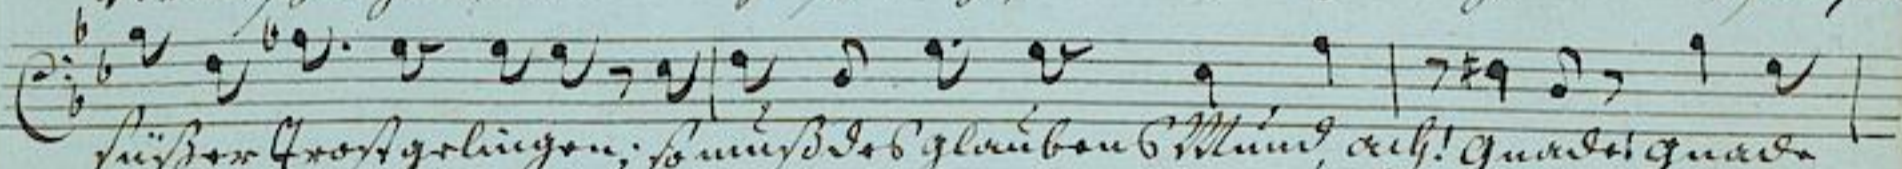 süßer Trost gelingen; so muß des glaubens Mund, ach! Gnade! gnade